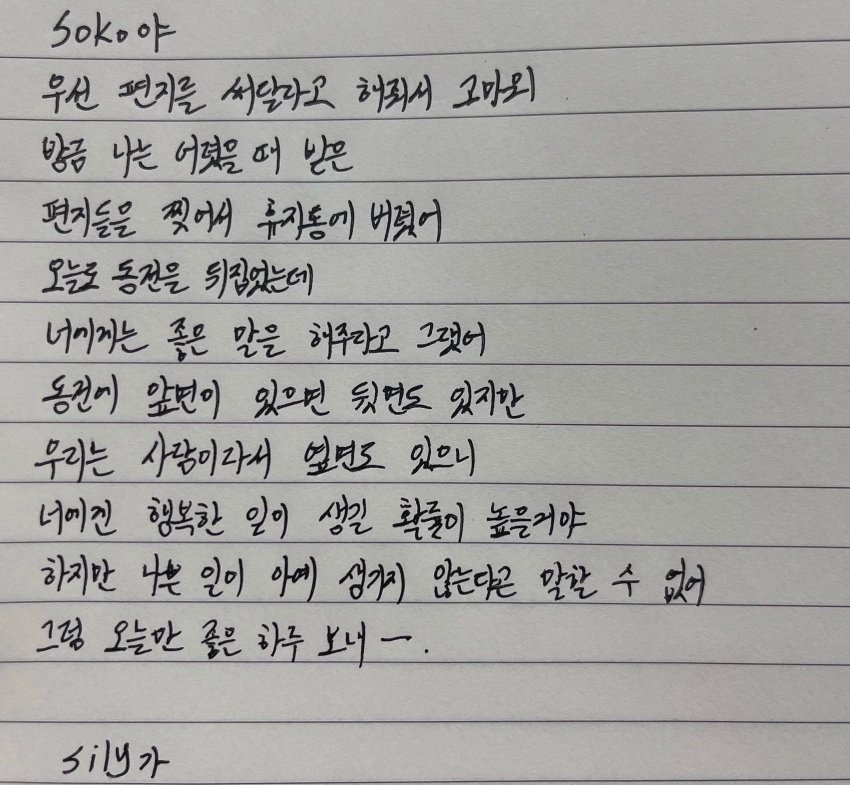 soko야
우선 편지를 써달라고 해줘서 고마워
방금 나는 어렸을 때 받은
편지들을 찢어서 휴지통에 버렸어
오늘로 동전을 뒤집었는데
너에게는 좋은 말을 해주라고 그랬어
동전에 앞면이 있으면 뒷면도 있지만
우리는 사람이라서 옆면도 있으니
너에겐 행복한 일이 생길 확률이 높을거야
하지만 나쁜 일이 아예 생기지 않는다곤 말할 수 없어
그럼 오늘만 좋은 하루 보내ㅡ.
sily가